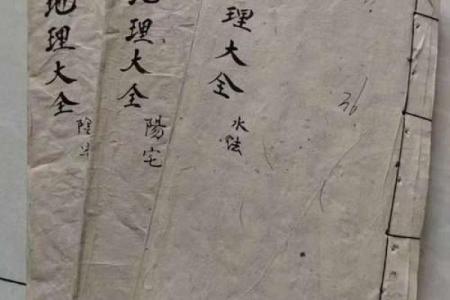 理大全
水法
地理大全
陽宅
地理大全
陰